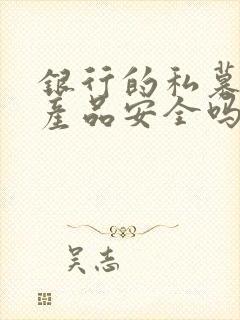 银行的私募
产品安全吗
吴志